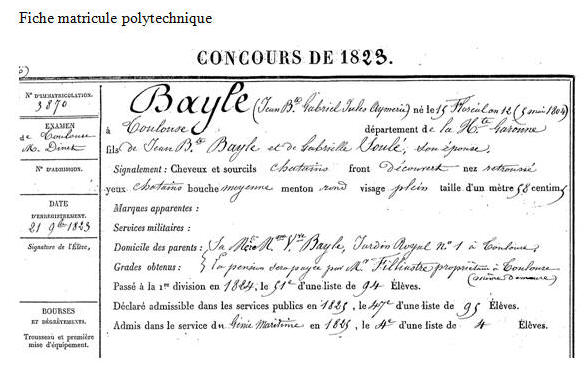 Fiche matricule polytechnique
CONCOURS DE 1823.
N° D'IMMATRICULATION.
3870
EXAMEN
de Toulouse
M. Dinet
N° D'ADMISSION.
DATE
D'ENREGISTREMENT.
21 9bre 1823
Signature de l'Élève,
BOURSES
ET DÉGRÈVEMENTS.
Trousseau et première
mise d'équipement.
Bayle (Jean Bte Gabriel Jules Aymeric) né le 15 Floréal an 12 (5 mai 1804)
à Toulouse département de la Hte Garonne
fils de Jean Bte Bayle et de Gabrielle Soulé, son épouse.
Signalement : Cheveux et sourcils chatains front découvert nez retroussé
yeux chatains bouche moyenne menton rond visage plein taille d'un mètre 58 centim
Marques apparentes :
Services militaires :
Domicile des parents : Sa Mère Mme Vve Bayle, Jardin Royal n° 1 à Toulouse,
Grades obtenus : La pension sera payée par Mr Filhastre propriétaire à Toulouse
Passé à la 1re division en 1824, le 51e d'une liste de 94 Élèves.
Déclaré admissible dans les services publics en 1825, le 47e d'une liste de 95 Élèves.
Admis dans le service du Génie Maritime en 1825, le 4e d'une liste de 4 Élèves.